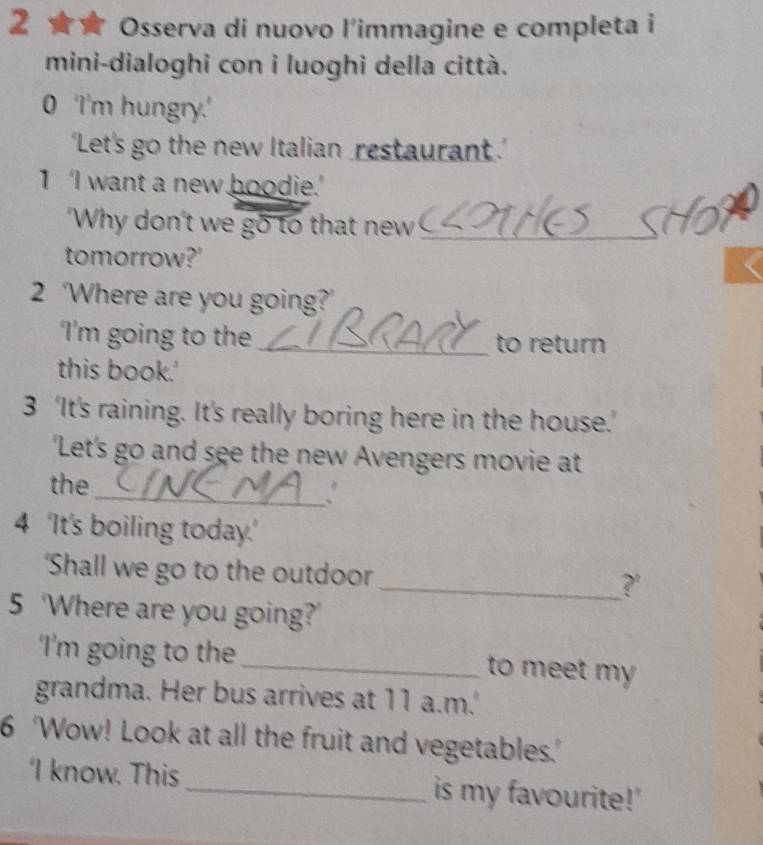 2 ★★ Osserva di nuovo l'immagine e completa i
mini-dialoghi con i luoghi della città.
0 'I'm hungry.'
'Let's go the new Italian restaurant.'
1 'I want a new hoodie.'
'Why don't we go to that new CLOTHES SHOP
tomorrow?'
2 'Where are you going?'
'I'm going to the LIBRARY to return
this book.'
3 'It's raining. It's really boring here in the house.'
'Let's go and see the new Avengers movie at
the CINEMA.'
4 'It's boiling today.'
'Shall we go to the outdoor ____?'
5 'Where are you going?'
'I'm going to the ____ to meet my
grandma. Her bus arrives at 11 a.m.'
6 'Wow! Look at all the fruit and vegetables.'
'I know. This ____ is my favourite!'